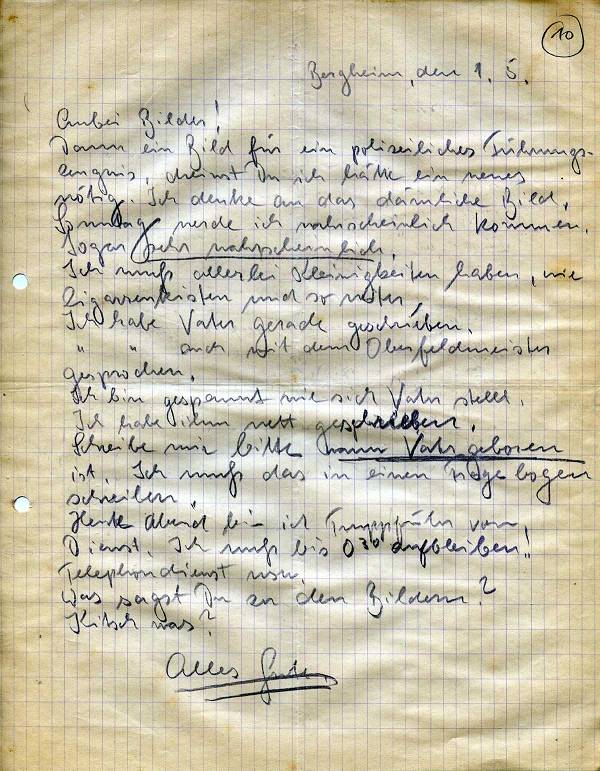 10
Bergheim, den 1. 5.
Anbei Bilder!
Dann ein Bild für ein polizeiliches Führungs-
zeugnis, meinst Du ich hätte ein neues
nötig. Ich denke an das dämliche Bild.
Sonntag werde ich wahrscheinlich kommen.
Sogar sehr wahrscheinlich.
Ich muß allerlei Kleinigkeiten haben, wie
Zigarrenkisten und so weiter.
Ich habe Vater gerade geschrieben.
" " auch mit dem Oberfeldmeister
gesprochen.
Ich bin gespannt wie sich Vater stellt.
Ich habe ihm nett geschrieben.
Schreibe mir bitte wann Vater geboren
ist. Ich muß das in einen Fragebogen
schreiben.
Heute Abend bin ich Truppführer vom
Dienst. Ich muß bis 0 30 aufbleiben!!
Telephondienst usw.
Was sagst Du zu den Bildern?
Kitsch was?
Alles Gute